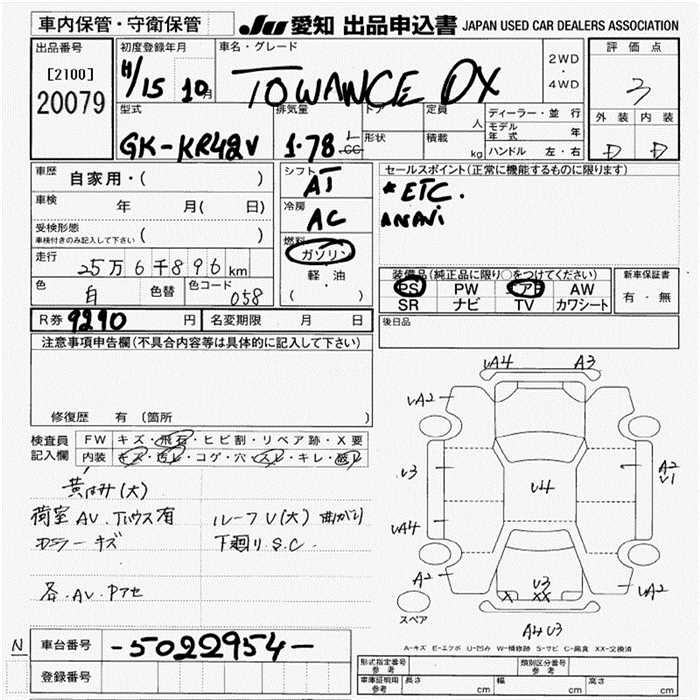 車内保管・守衛保管
JU 愛知 出品申込書 JAPAN USED CAR DEALERS ASSOCIATION
出品番号
[2100]
20079
初度登録年月
H/15 10月
車名・グレード
TOWANCE DX
2WD
・
4WD
評価点
3
外装 内装
D D
型式
GK-KR42V
排気量
1.78 L
cc
ドア
形状
定員
人
積載
kg
ディーラー・並行
モデル年式 年
ハンドル 左・右
車歴 自家用・( )
車検 年 月( 日)
受検形態
車検付きのみ記入して下さい ( )
走行 25万6千896km
色 白 色替 色コード 058
R券 9290 円 名変期限 月 日
シフト
AT
冷房
AC
燃料
ガソリン
軽・油
( )
セールスポイント(正常に機能するものに限ります)
*ETC.
装備品(純正品に限り○をつけてください)
PS PW エアB AW
SR ナビ TV カワシート
新車保証書
有・無
後日品
注意事項申告欄(不具合内容等は具体的に記入して下さい)
修復歴 有 (箇所 )
検査員
記入欄
FW キズ・飛石・ヒビ割・リペア跡・X要
内装 キズ・汚レ・コゲ・穴・スレ・キレ・破レ
(大)
荷室 AV.Tハウス有 ルーフU(大)曲がり
キズ 下廻りS.C.
各.AV.Pアセ
UA4 A3
UA2
U3
UA4
A2
U4
A2
U1
UA2
U3
X XX
A4U3
スペア
A-キズ E-エクボ U-凹み W-補修跡 S-サビ C-腐食 XX-交換済
N 車台番号 -5022954-
登録番号
形式指定番号
参考
類別区分番号
参考
車庫証明用
参考
長さ cm 幅 cm 高さ cm